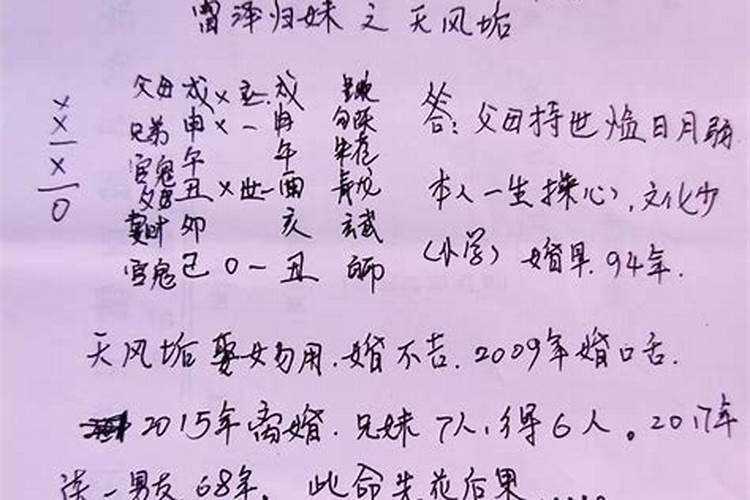 雷泽归妹之天风垢
父母戌×应戌 答:父母持世临日月弱
兄弟申×一申
官鬼午 午 朱雀
父母丑×世一酉 青龙 本人一生操心,文化少
妻财卯 亥 玄武
官鬼巳0一丑 (小学)婚早.94年.
天风垢娶女勿用.婚不吉.2009年婚口舌.
2015年离婚.兄妹7人,得6人。2017年
一男友68年,此命先花后果......